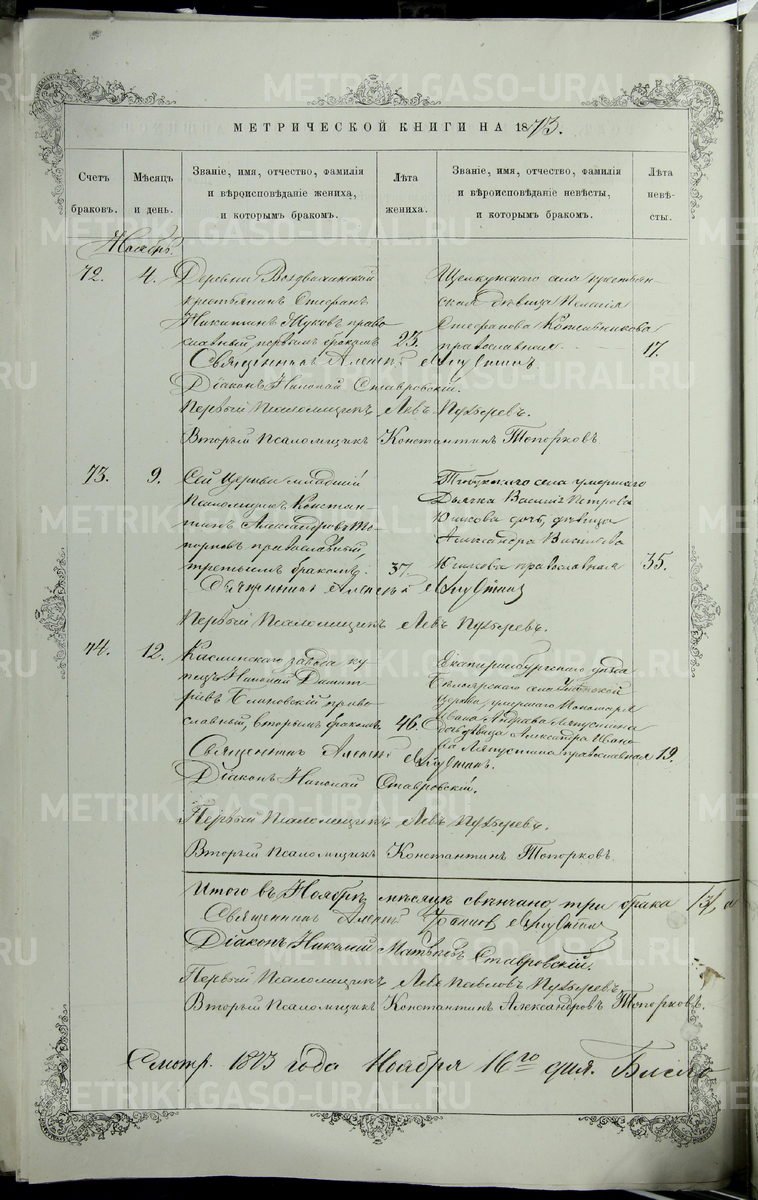 МЕТРИЧЕСКОЙ КНИГИ НА 1873.
Счетъ браковъ.
Мѣсяцъ и день.
Званіе, имя, отчество, фамилія
и вѣроисповѣданіе жениха,
и которымъ бракомъ.
Лѣта жениха.
Званіе, имя, отчество, фамилія
и вѣроисповѣданіе невѣсты,
и которымъ бракомъ.
Лѣта невѣ-
сты.
Ноябрь.
72. 4.
Деревни Воздвиженской
крестьянинъ Стефанъ
Никитинъ Жуковъ право
славный, первымъ бракомъ 23.
Щелкунскаго села крестьян
ская дѣвица Пелагія
Стефанова Кожевникова
православная 17.
Священникъ Алексѣй
Діаконъ Николай Ставровскій.
Первый Псаломщикъ Левъ Пузыревъ.
Второй Псаломщикъ Константинъ Топорковъ
73. 9.
Сей церкви младшій
Псаломщикъ Констан-
тинъ Александровъ То
порковъ православный,
третьимъ бракомъ. 37.
села умершаго
Дьячка Василія Петрова
дочь, дѣвица
Александра Васильева
православная 35.
Священникъ Алексѣй
Первый Псаломщикъ Левъ Пузыревъ.
74. 12.
Каслинскаго завода ку
пецъ Николай Дмит
ріевъ православный, вторымъ бракомъ 46.
Екатеринбургскаго уѣзда
села
церкви умершаго Пономаря
Ивана Ляпустина
дочь дѣвица Александра Ивано
ва Ляпустина православная 19.
Священникъ Алексѣй
Діаконъ Николай Ставровскій.
Первый Псаломщикъ Левъ Пузыревъ.
Второй Псаломщикъ Константинъ Топорковъ.
Итого въ Ноябрѣ мѣсяцѣ свѣнчано три брака
Священникъ Алексѣй
Діаконъ Николай Матвѣевъ Ставровскій.
Первый Псаломщикъ Левъ Павловъ Пузыревъ
Второй Псаломщикъ Константинъ Александровъ Топорковъ.
Смотр. 1873 года Ноября 16го дня.
METRIKI.GASO-URAL.RU